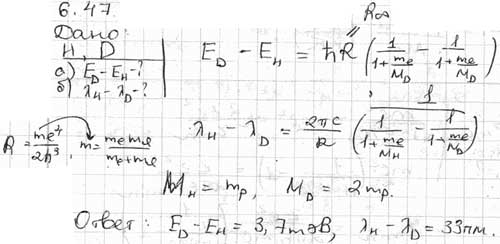 6.47
Дано:
H, D
а) E_D - E_H - ?
б) λ_H - λ_D - ?
R_∞
E_D - E_H = ħR (1/(1+me/M_D) - 1/(1+me/M_D))
R = me⁴/2ħ³, m =
λ_H - λ_D = 2πc/R · 1/(1/(1+me/M_H) - 1/(1+me/M_D))
M_H = m_p, M_D = 2m_p.
Ответ: E_D - E_H = 3,7 мэВ, λ_H - λ_D = 33 пм.